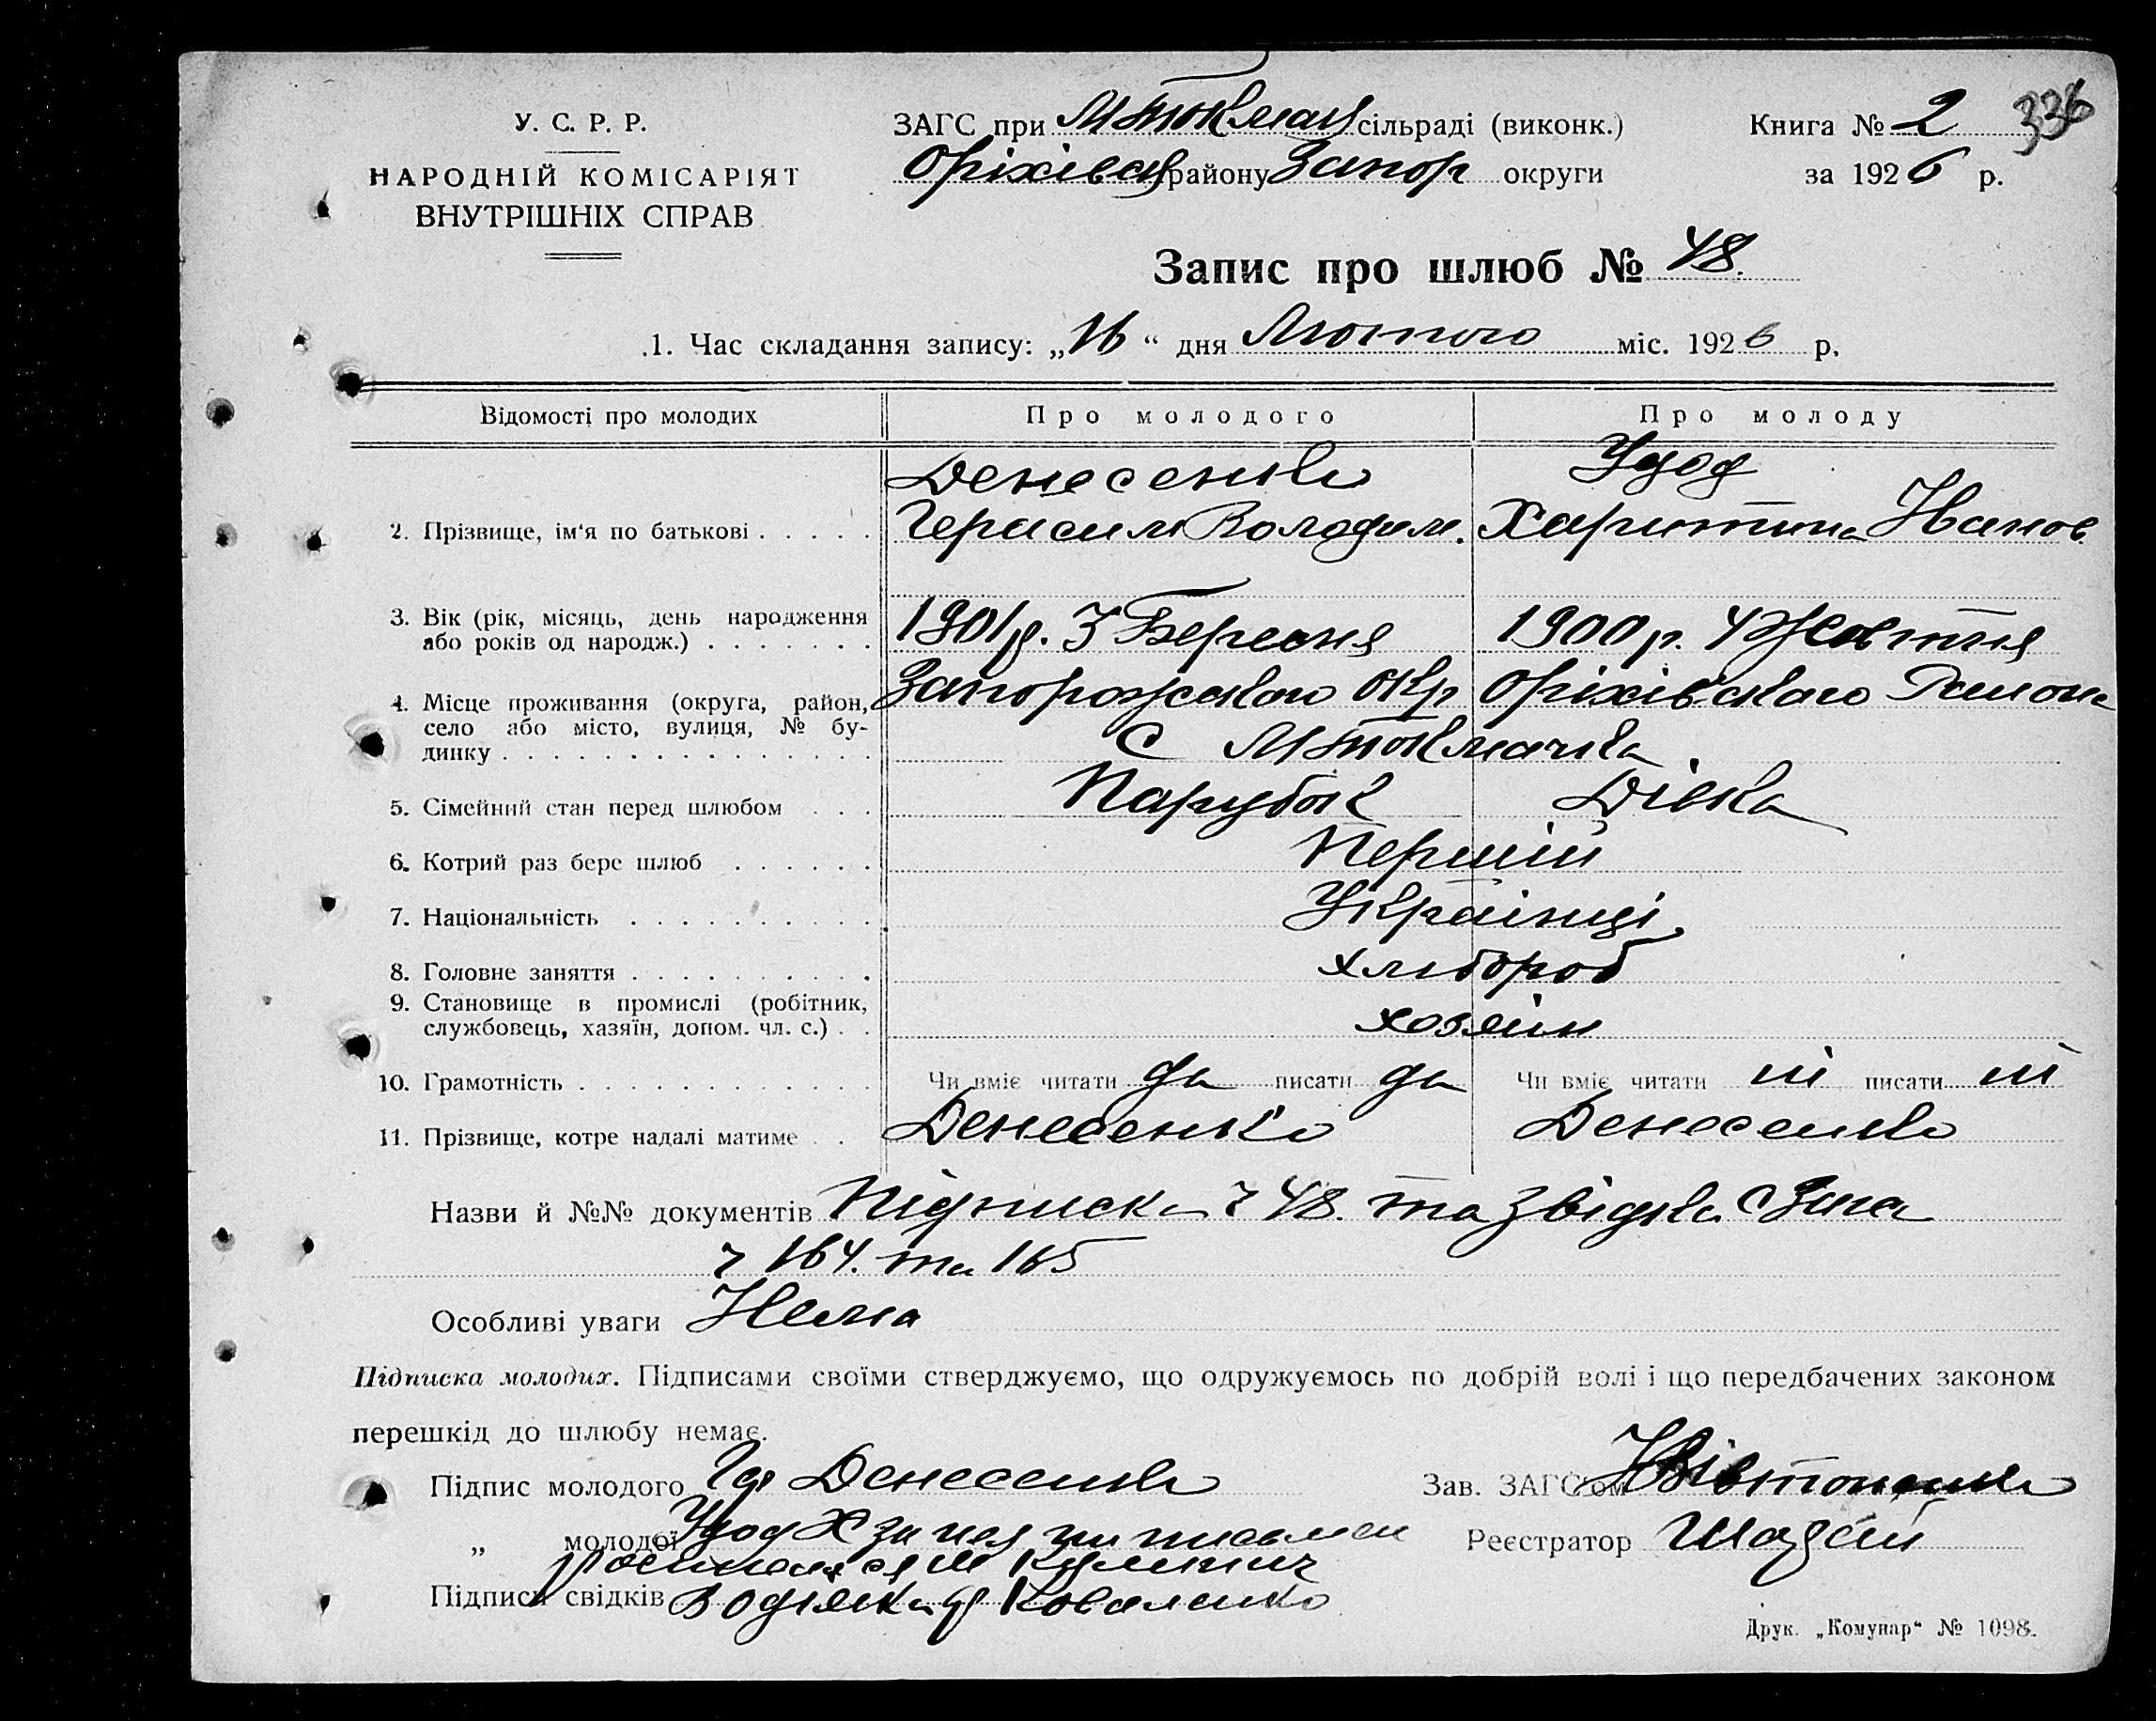 У. С. Р. Р.
НАРОДНІЙ КОМІСАРІЯТ
ВНУТРІШНІХ СПРАВ
ЗАГС при МТокмац сільраді (виконк.)
Оріхівськ району Запор округи
Книга № 2 336
за 1926 р.
Запис про шлюб № 48.
1. Час складання запису: „16“ дня Лютого міс. 1926 р.
Відомості про молодих Про молодого Про молоду
2. Прізвище, ім'я по батькові
Денесенко
Герасим Володим.
Удод
Харитина Іванов
3. Вік (рік, місяць, день народження
або років од народж.)
1901р. 3 Березня 1900 р. 4 Жовтня
4. Місце проживання (округа, район,
село або місто, вулиця, № бу-
динку
Запорожского Окр Оріхівского Району
С МТокмачка
5. Сімейний стан перед шлюбом Парубок Дівка
6. Котрий раз бере шлюб Перший
7. Національність Українці
8. Головне заняття хлібороб
9. Становище в промислі (робітник,
службовець, хазяїн, допом. чл. с.)
хозяїн
10. Грамотність Чи вміє читати да писати да Чи вміє читати ні писати ні
11. Прізвище, котре надалі матиме Денесенко Денесенко
Назви й №№ документів Підписка ч 48. та звідка
ч 164. та 165
Особливі уваги Нема
Підписка молодих. Підписами своїми стверджуємо, що одружуємось по добрій волі і що передбачених законом
перешкід до шлюбу немає.
Підпис молодого Денесенко
Зав. ЗАГС'ом
„ молодої Удод Х за неї
Реєстратор
Підписи свідків Коваленко
Друк. „Комунар“ № 1098.